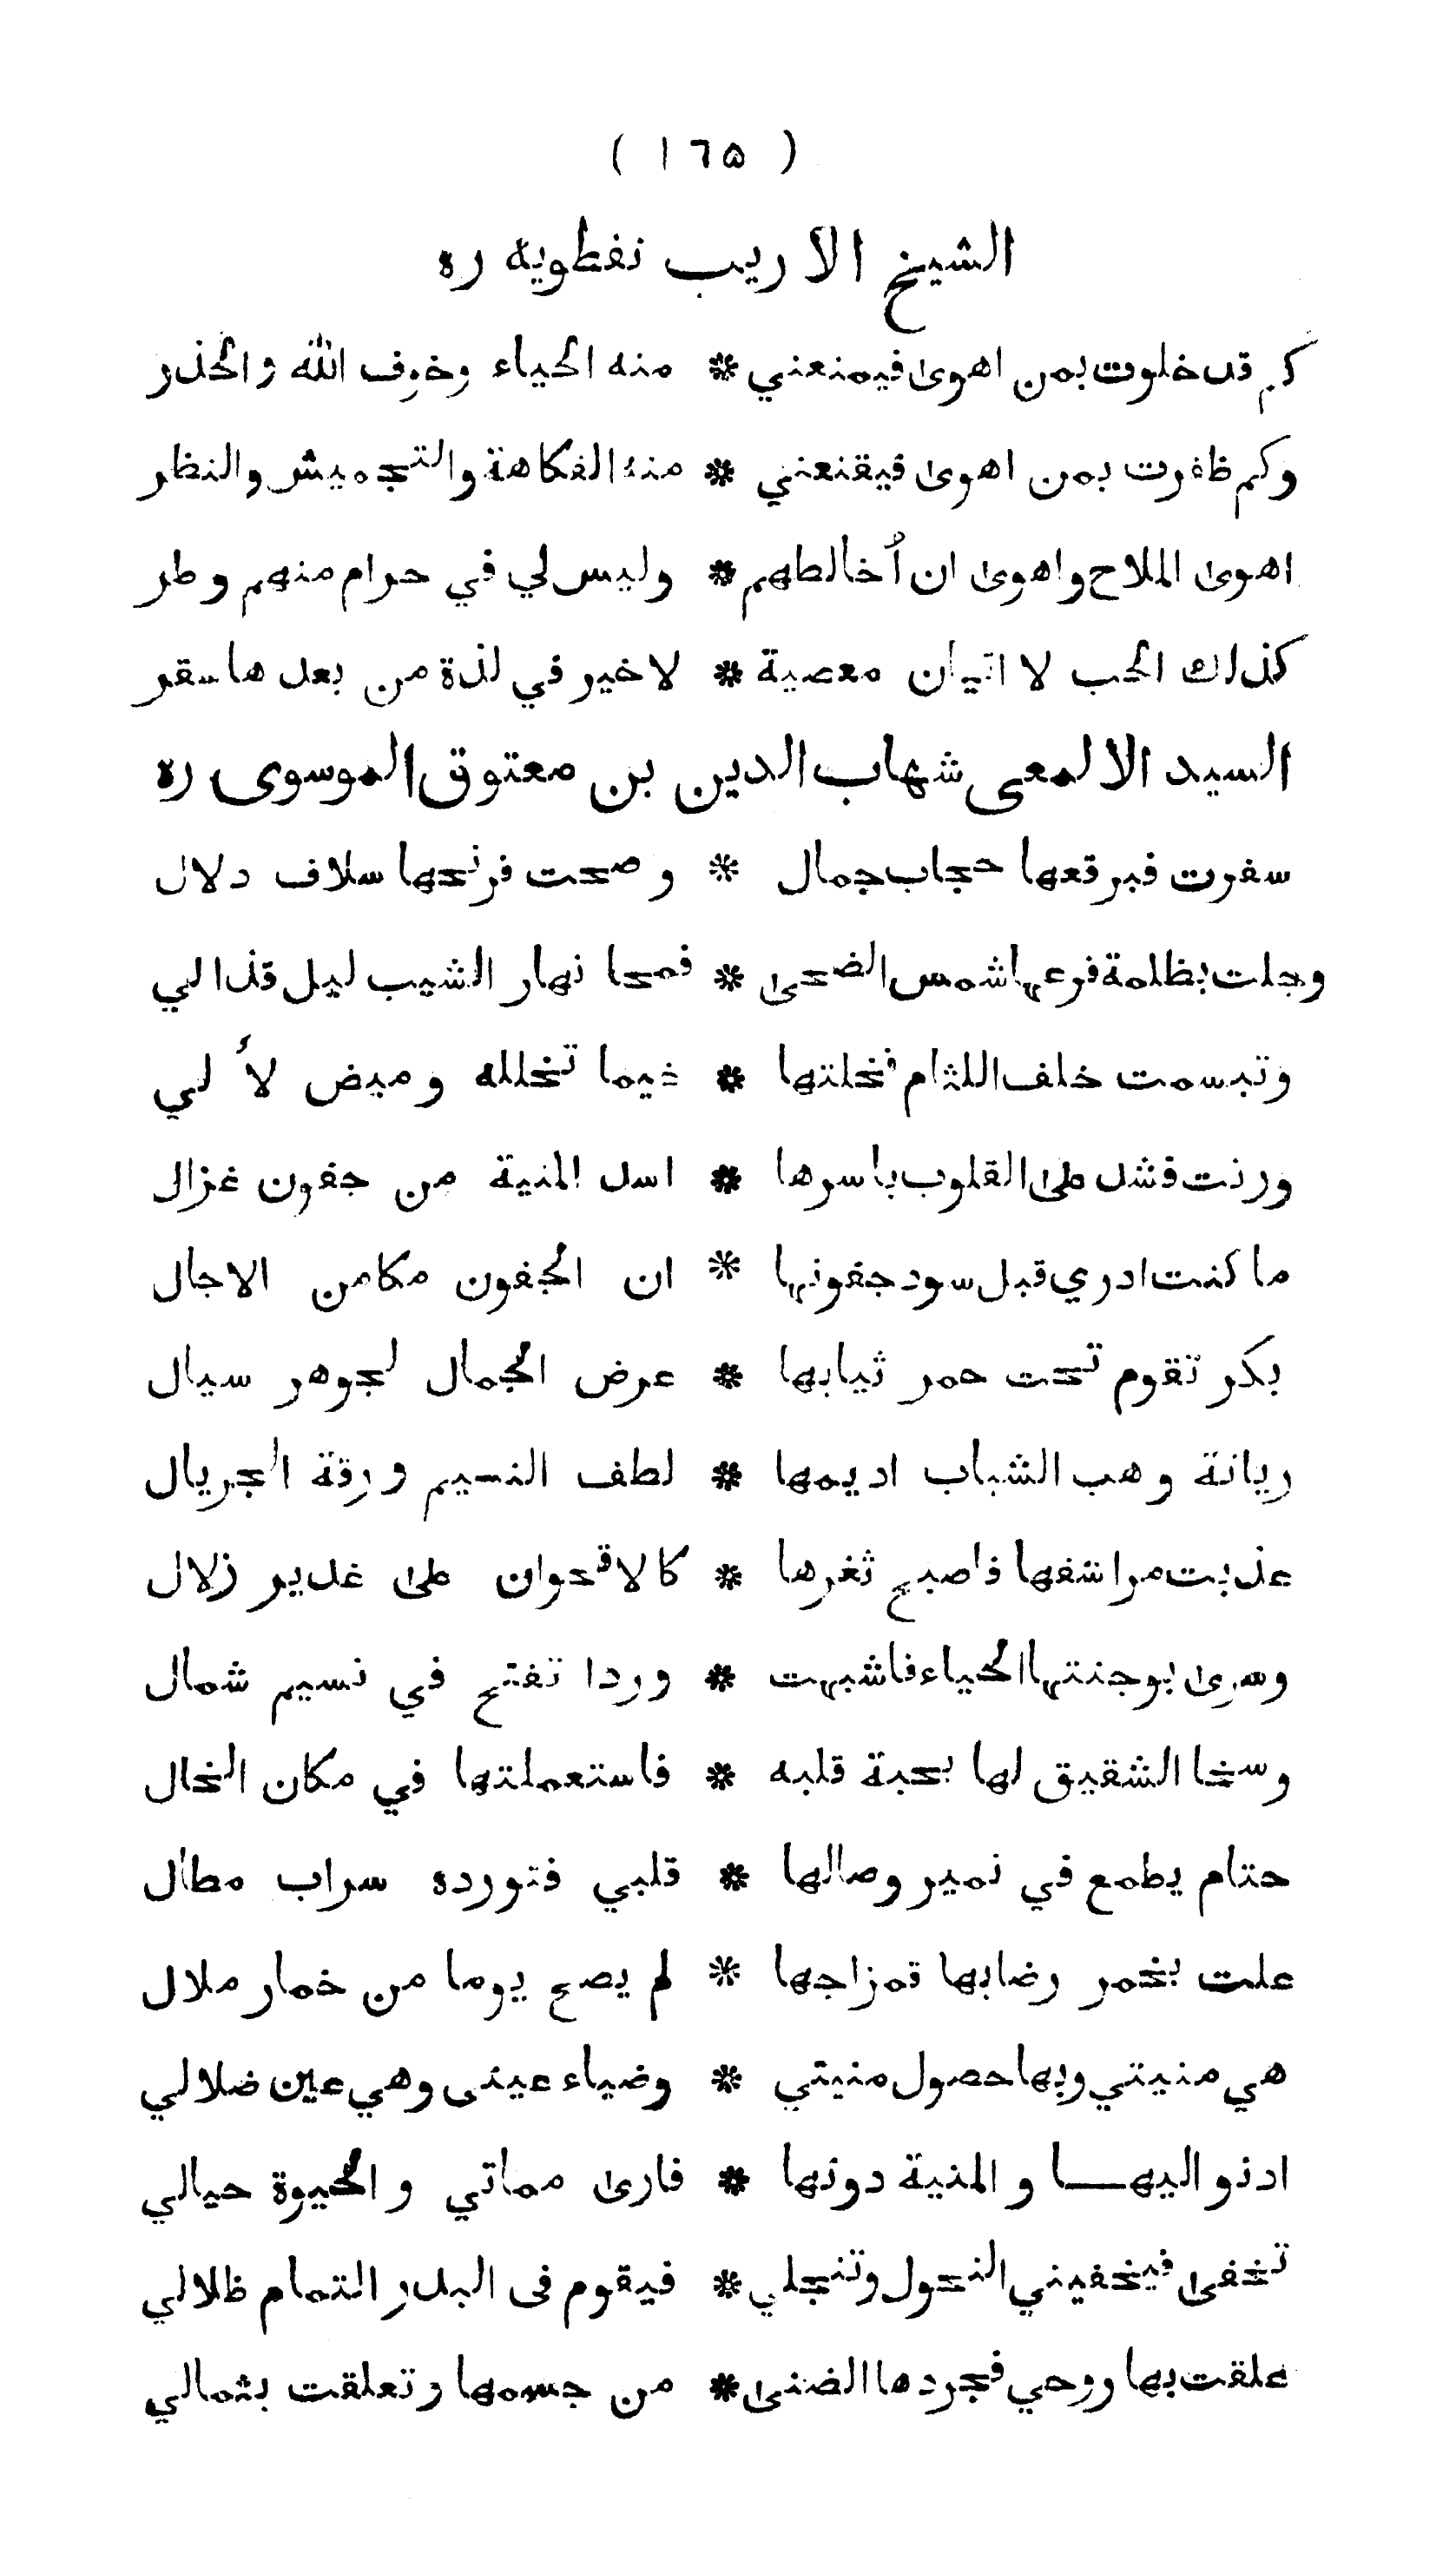 ( ١٦٥ )
الشيخ الاريب نفطويه ره
كم قد خلوت بمن اهوى فيمنعني * منه الحياء وخوف الله والحذر
وكم ظفرت بمن اهوى فيقنعني * منه الفكاهة والتجميش والنظر
اهوى الملاح واهوى ان أخالطهم * وليس لي في حرام منهم وطر
كذلك الحب لا اتيان معصية * لا خير في لذة من بعدها سقر
السيد الالمعى شهاب الدين بن معتوق الموسوى ره
سفرت فبرقعها حجاب جمال * وصحت فرنحها سلاف دلال
وجلت بظلمة فرعها شمس الضحى * فمحا نهار الشيب ليل قذالي
وتبسمت خلف اللثام فخلتها * غيما تخلله وميض لألي
ورنت فشد على القلوب باسرها * اسد المنية من جفون غزال
ما كنت ادري قبل سود جفونها * ان الجفون مكامن الاجال
بكر تقوم تحت حمر ثيابها * عرض الجمال لجوهر سيال
ريانة وهب الشباب اديمها * لطف النسيم ورقة الجريال
عذبت مراشفها فاصبح ثغرها * كالاقحوان على غدير زلال
وسرى بوجنتها الحياء فاشبهت * وردا تفتح في نسيم شمال
وسخا الشقيق لها بحبة قلبه * فاستعملتها في مكان الخال
حتام يطمع في نمير وصالها * قلبي فتورده سراب مطال
علت بخمر رضابها فمزاجها * لم يصح يوما من خمار ملال
هي منيتي وبها حصول منيتي * وضياء عينى وهي عين ضلالي
ادنو اليهـــا والمنية دونها * فارى مماتي والحيوة حيالي
تخفى فيخفيني النحول وتنجلي * فيقوم فى البدر التمام ظلالي
علقت بها روحي فجردها الضنى * من جسمها وتعلقت بمثالي